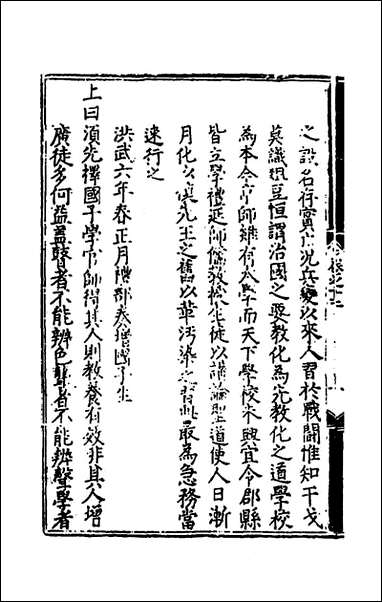 之設名存實亡況兵變以來人習於戰鬪惟知干戈
莫識俎豆恒謂治國之要教化為先教化之道學校
為本今京師雖有太學而天下學校未興宜令郡縣
皆立學禮延師儒教授生徒以講論聖道使人日漸
月化以復先王之舊以革汙染之習此最為急務當
速行之
洪武六年春正月禮部奏增國子生
上曰須先擇國子學官師得其人則教養有效非其人增
廣徒多何益蓋瞽者不能辨色聾者不能辨聲學者